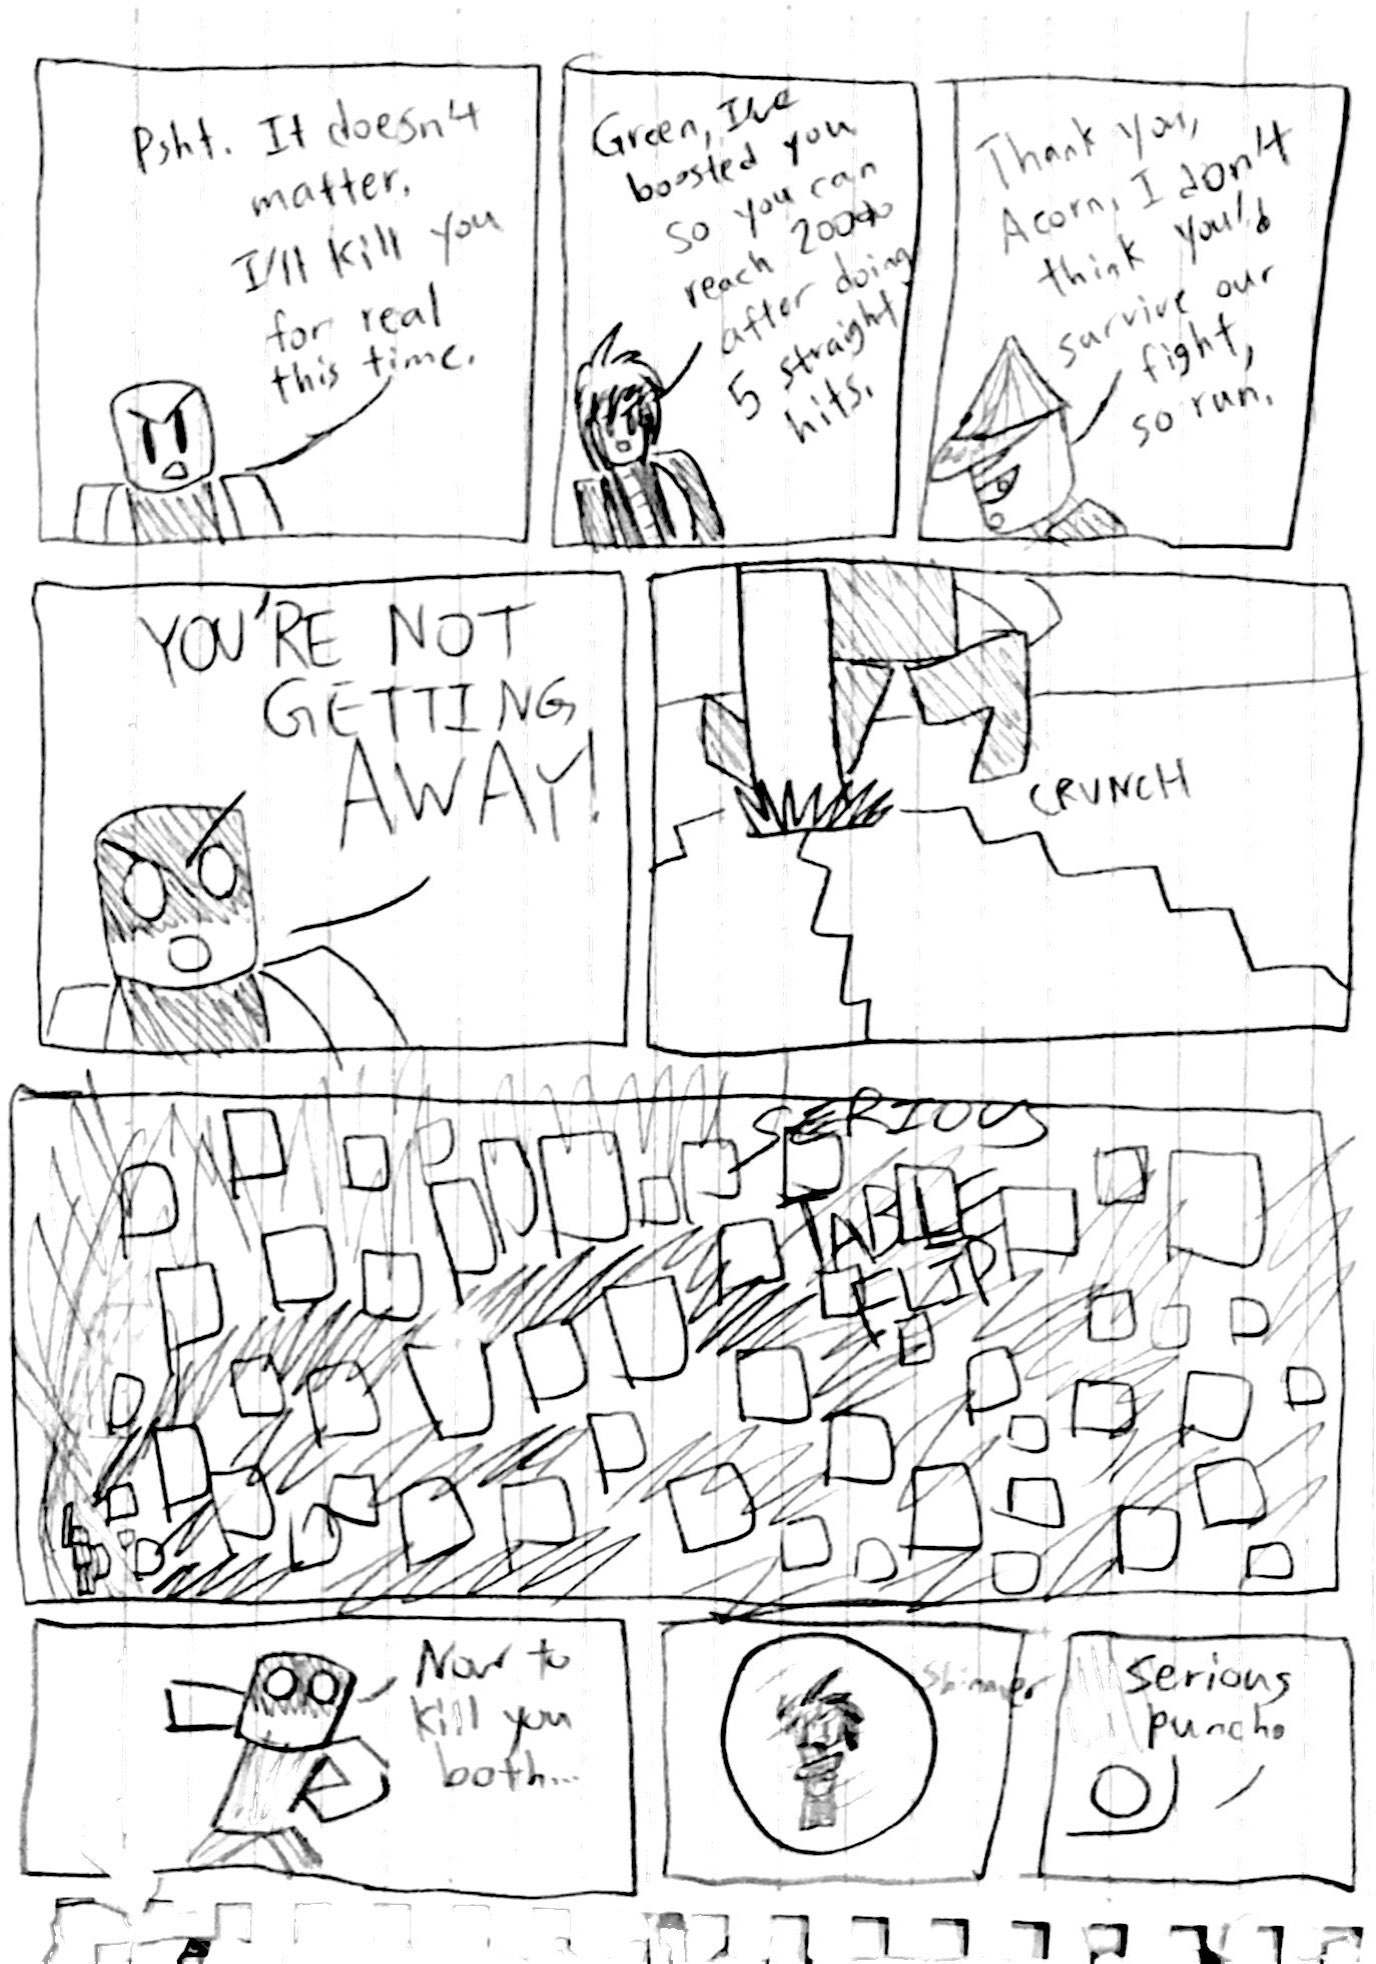 Psht. It doesn't
matter.
I'll kill you
for real
this time.
Green, I've
boosted you
so you can
reach 200%
after doing
5 straight
hits.
Thank you,
Acorn, I don't
think you'd
survive our
fight,
so run.
YOU'RE NOT
GETTING
AWAY!
CRUNCH
SERIOUS
TABLE
FLIP
Now to
kill you
both...
Shimmer
Serious
punch.